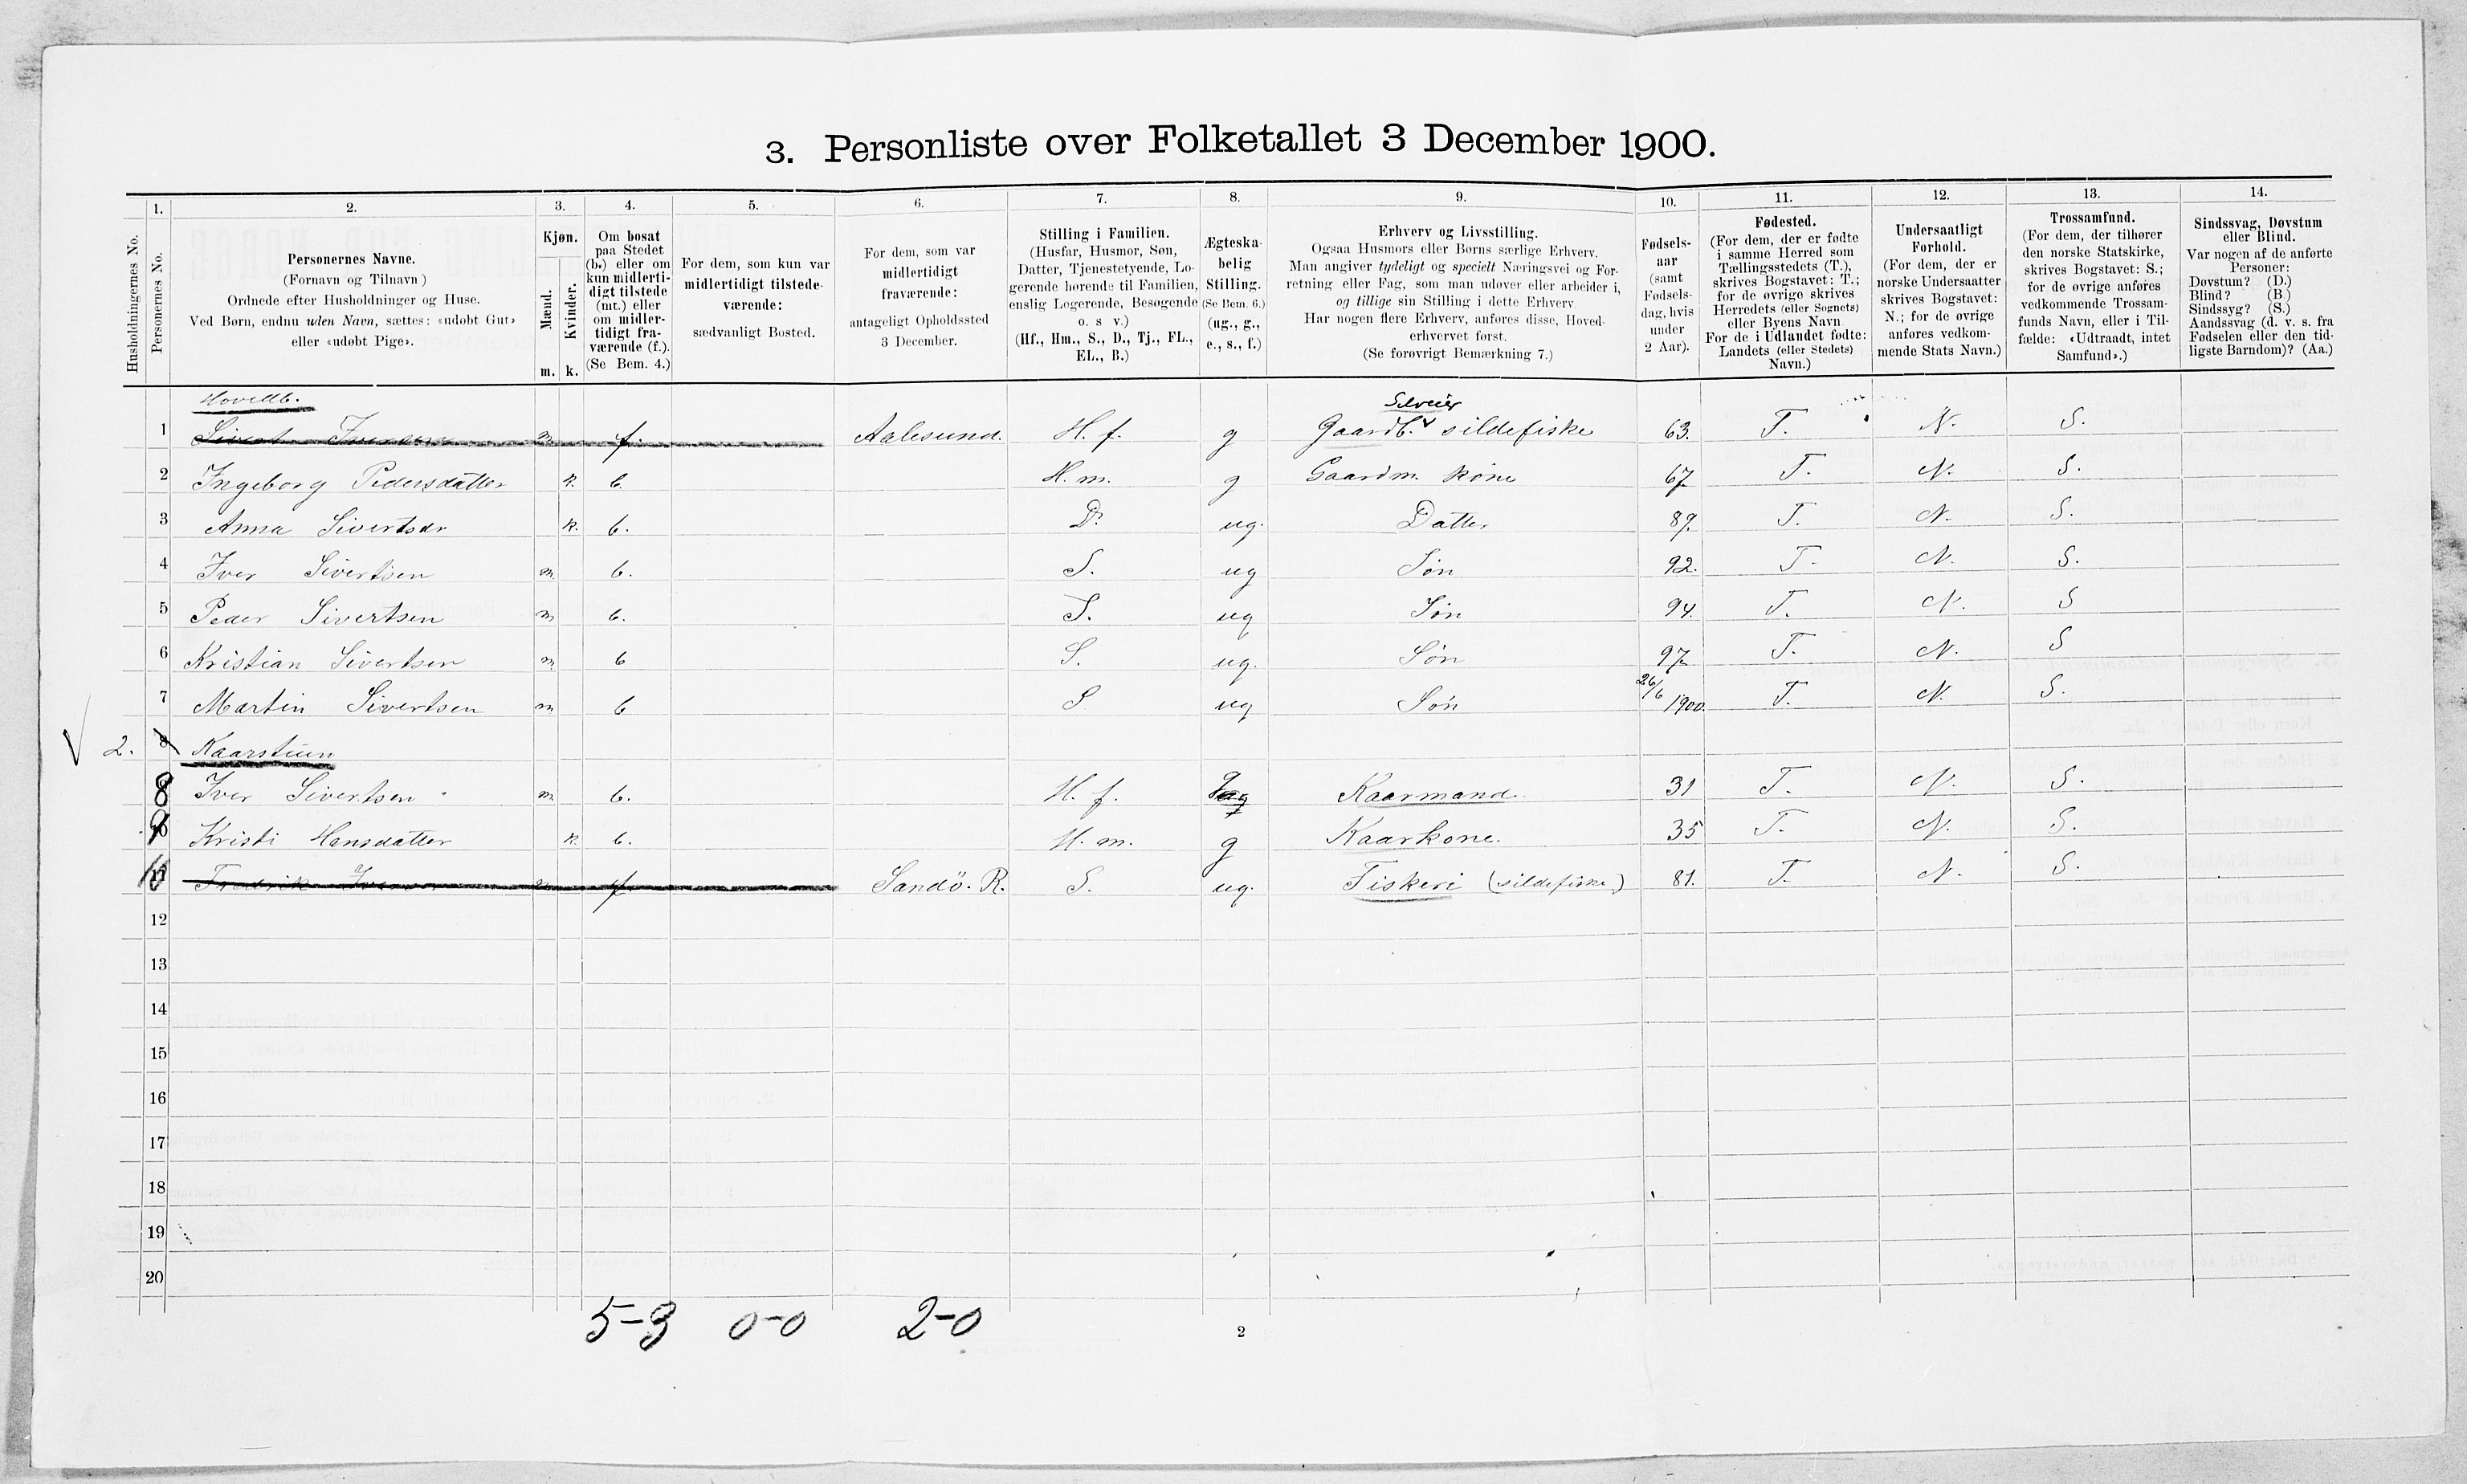 3. Personliste over Folketallet 3 December 1900.
Husholdningernes No.
1.
Personernes No.
2.
Personernes Navne.
(Fornavn og Tilnavn)
Ordnede efter Husholdninger og Huse.
Ved Børn, endnu uden Navn, sættes: «udøbt Gut»
eller «udøbt Pige».
3.
Kjøn.
Mænd.
Kvinder.
m. k.
4.
Om bosat
paa Stedet
(b.) eller om
kun midlerti-
digt tilstede
(mt.) eller
om midler-
tidigt fra-
værende (f.).
(Se Bem. 4.)
5.
For dem, som kun var
midlertidigt tilstede-
værende:
sædvanligt Bosted.
6.
For dem, som var
midlertidigt
fraværende:
antageligt Opholdssted
3 December.
7.
Stilling i Familien.
(Husfar, Husmor, Søn,
Datter, Tjenestetyende, Lo-
gerende hørende til Familien,
enslig Logerende, Besøgende
o. s v.)
(Hf., Hm., S., D., Tj., FL.,
EL., B.)
8.
Ægteska-
belig
Stilling.
(Se Bem. 6.)
(ug., g.,
e., s., f.)
9.
Erhverv og Livsstilling.
Ogsaa Husmors eller Børns særlige Erhverv.
Man angiver tydeligt og specielt Næringsvei og For-
retning eller Fag, som man udøver eller arbeider i,
og tillige sin Stilling i dette Erhverv.
Har nogen flere Erhverv, anføres disse, Hoved-
erhvervet først.
(Se forøvrigt Bemærkning 7.)
10.
Fødsels-
aar
(samt
Fødsels-
dag, hvis
under
2 Aar).
11.
Fødested.
(For dem, der er fødte
i samme Herred som
Tællingsstedets (T.),
skrives Bogstavet: T.;
for de øvrige skrives
Herredets (eller Sognets)
eller Byens Navn
For de i Udlandet fødte:
Landets (eller Stedets)
Navn.)
12.
Undersaatligt
Forhold.
(For dem, der er
norske Undersaatter
skrives Bogstavet:
N.; for de øvrige
anføres vedkom-
mende Stats Navn.)
13.
Trossamfund.
(For dem, der tilhører
den norske Statskirke,
skrives Bogstavet: S.;
for de øvrige anføres
vedkommende Trossam-
funds Navn, eller i Til-
fælde: «Udtraadt, intet
Samfund».)
14.
Sindssvag, Døvstum
eller Blind.
Var nogen af de anførte
Personer:
Døvstum? (D.)
Blind? (B.)
Sindssyg? (S.)
Aandssvag (d. v. s. fra
Fødselen eller den tid-
ligste Barndom)? (Aa.)
Hovedb. Selveier
1 Sivert Iversen m f. Aalesund. H. f. g Gaardb. sildefiske 63. T. N. S.
2 Ingeborg Pedersdatter k. b. H. m. g Gaardm. kone 67 T. N. S.
3 Anna Sivertsen k. b. D. ug. Datter 89. T. N. S.
4 Iver Sivertsen m b. S. ug Søn 92. T. N. S.
5 Peder Sivertsen m b. S. ug Søn 94. T. N. S
6 Kristian Sivertsen m b S. ug. Søn 97 T. N. S
7 Martin Sivertsen m b S ug Søn 26/6 1900. T. N. S.
2. Kaarstuen
8 Iver Sivertsen m b. H. f. g Kaarmand 31 T. N. S.
9 Kristi Hansdatter k. b. H. m. g Kaarkone. 35 T. N. S.
10 Fredrik Iversen m f Sandö. R. S. ug. Fiskeri (sildefiske) 81. T. N. S.
12
13
14
15
16
17
18
19
20
5-3 0-0 2-0
2